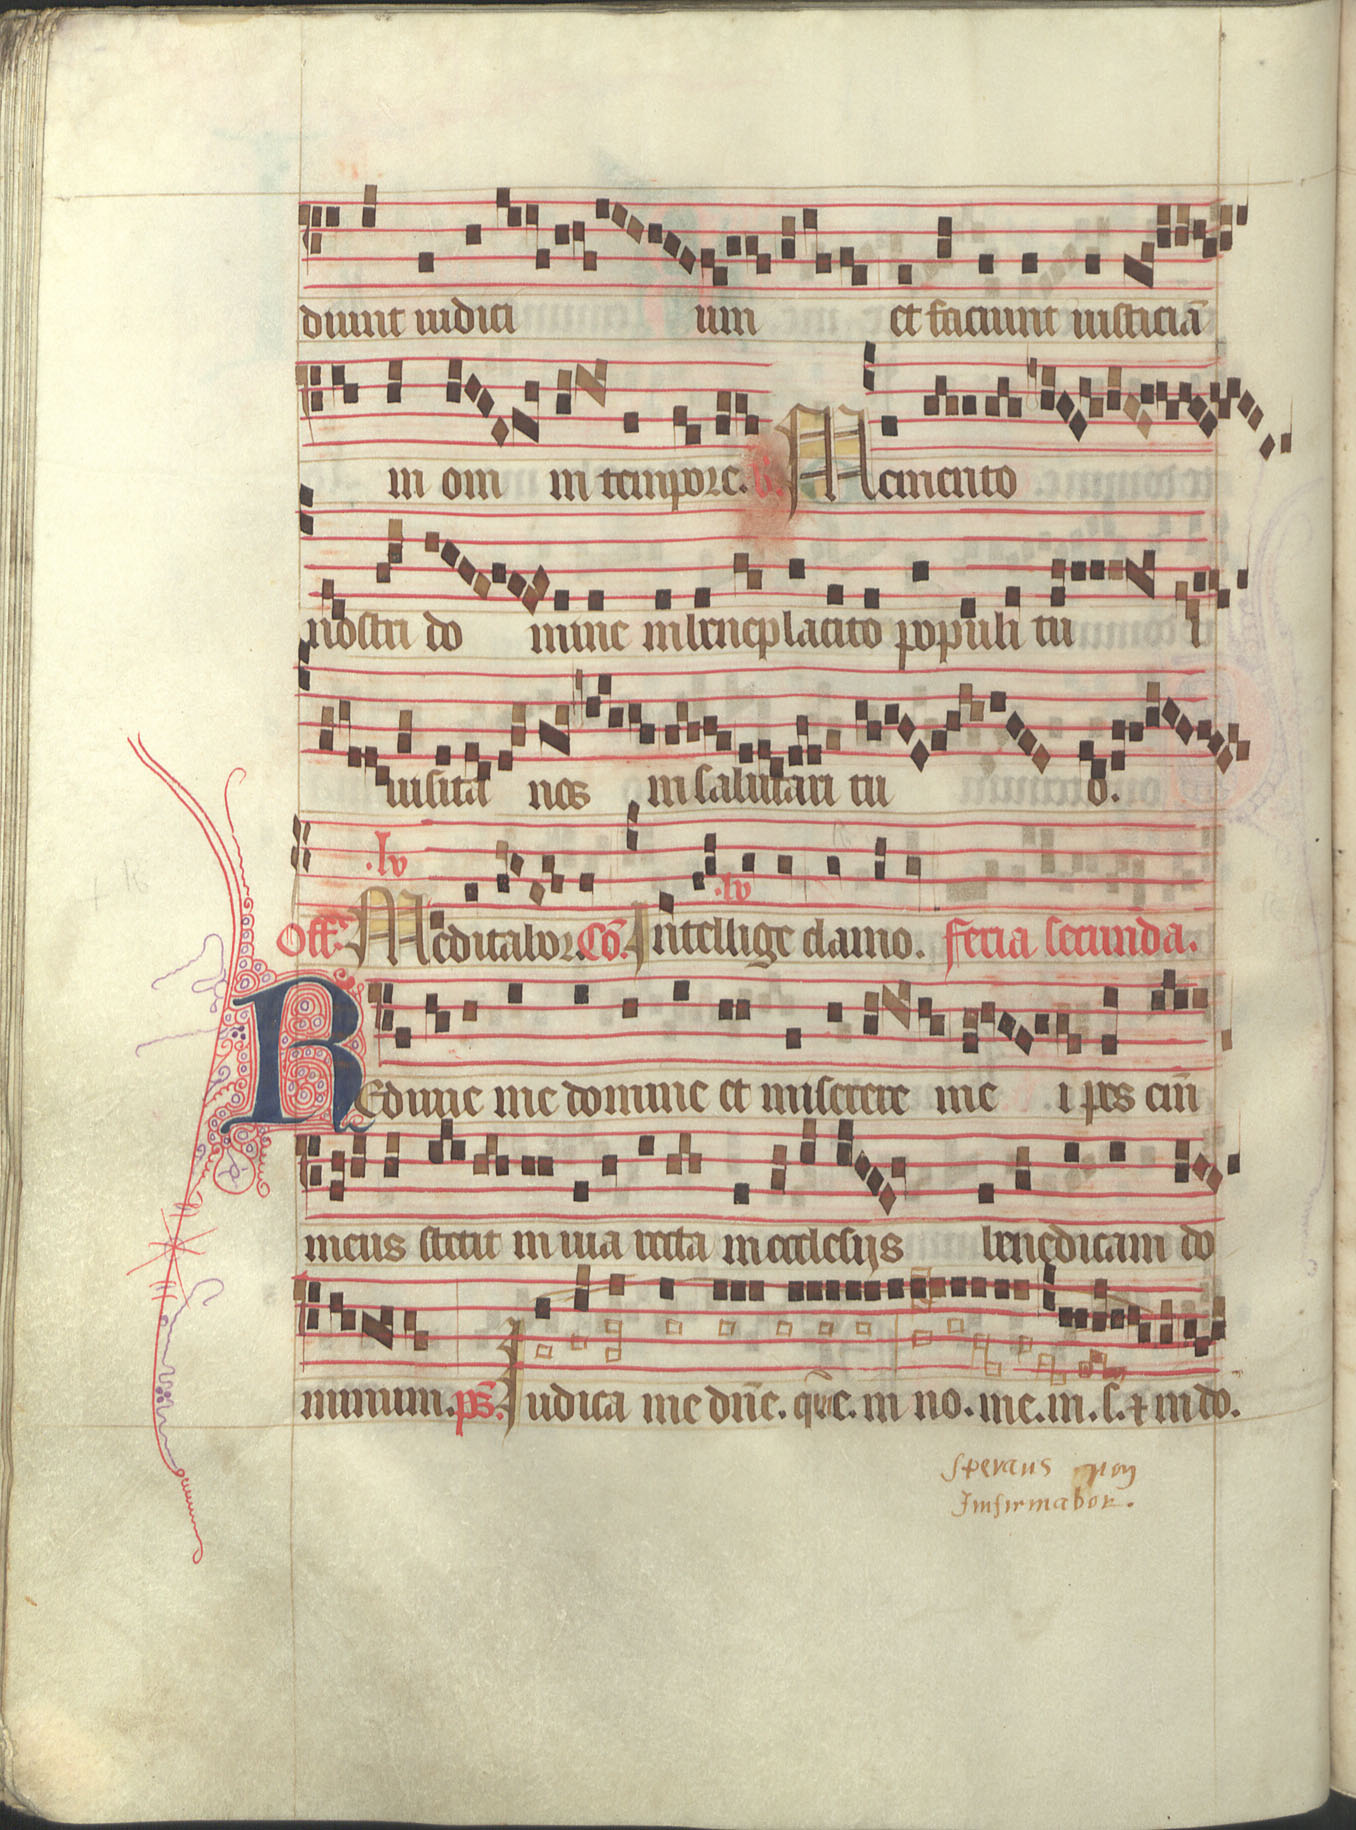 diunt iudici um et faciunt iusticiā
in om ni tempore. V. Memento
nostri do mine in beneplacito populi tu i
uisita nos in salutari tu o.
.lv .lv
Off. Meditabor. Cō. Intellige clamo. feria secunda.
Redime me domine et miserere me i pes eni
meus stetit in uia recta in ecclesijs benedicam do
minum. ps. Iudica me dnē. qm̄ e. in no. me. in. s. & in do.
sperans non
Infirmabor.